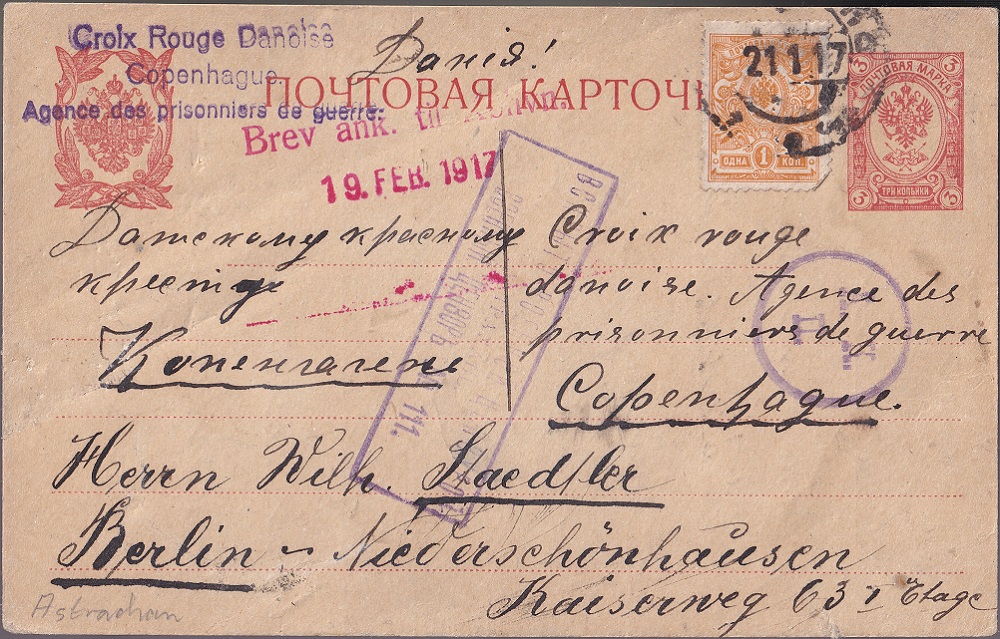 Croix Rouge Danoise
Copenhague
Agence des prisonniers de guerre.
Данія!
ПОЧТОВАЯ КАРТОЧ
Brev ank. til
19. FEB. 1917
21 1 17
ОДНА 1 КОП.
3 3
ПОЧТОВАЯ МАРКА
ТРИ КОПѢЙКИ
3 3
Датскому красному
кресту
Копенгагенъ
Croix rouge
danoise. Agence des
prisonniers de guerre
Copenhague.
Herrn Wilh. Staedtler
Berlin - Niederschönhausen
Kaiserweg 63 I Etage
Astrachan